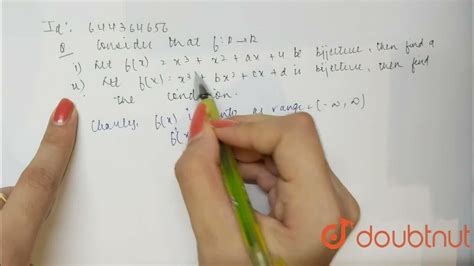 Id: 644364656
Q. Consider that f: R→R
i) Let f(x) = x³ + x² + ax + 4 be bijective, then find a
ii) Let f(x) = x³ + bx² + cx + d is bijective, then find
the condition.
Clearly, f(x) is onto as range (-∞, ∞)
f(x
doubtnut